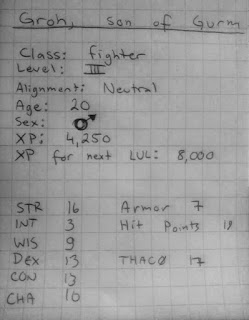 Groh, son of Gurm
Class: fighter
Level: III
Alignment: Neutral
Age: 20
Sex: ♂
XP: 4,250
XP for next LVL: 8,000
STR 16 Armor 7
INT 3 Hit Points
WIS 9
DEX 13 THAC0 17
CON 13
CHA 10